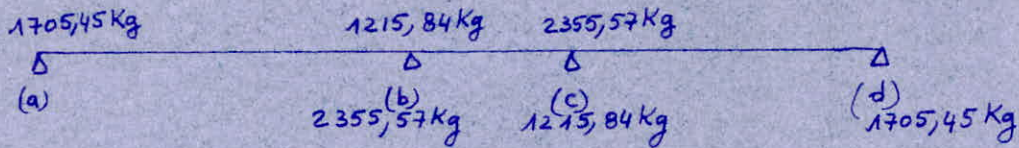 1705,45 Kg 1215,84 Kg 2355,57 Kg
(a) (b) (c) (d)
2355,57 Kg 1215,84 Kg 1705,45 Kg